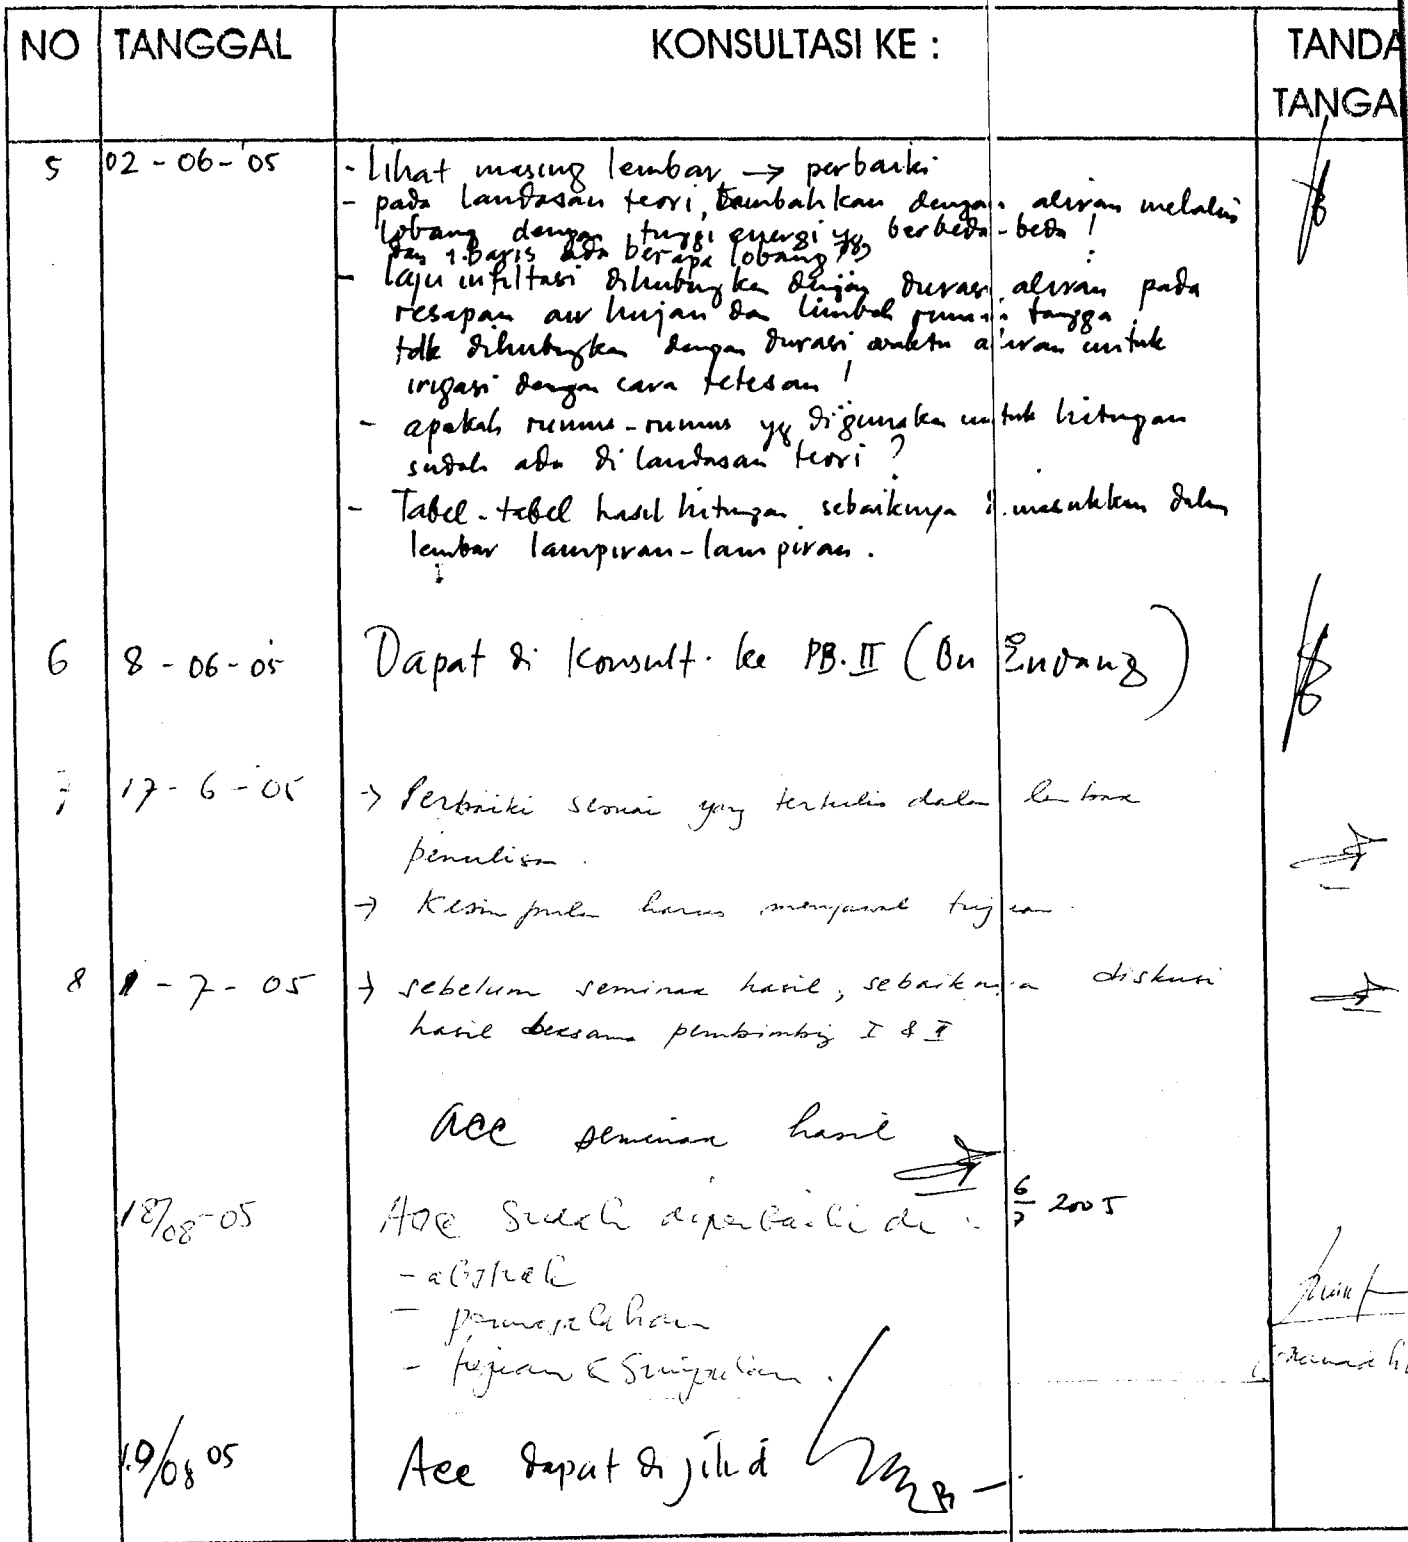 NO TANGGAL KONSULTASI KE : TANDA
TANGA
5 02 - 06 - '05 - Lihat masing lembar → perbaiki
- pada landasan teori, tambahkan dengan aliran melalui
lobang dengan tinggi energi yg berbeda-beda !
dan 1 baris ada berapa lobang
- laju infiltasi dihubungkan dengan durasi aliran pada
resapan air hujan dan limbah rumah tangga
tdk dihubungkan dengan durasi waktu aliran untuk
irigasi dengan cara tetesan !
- apakah rumus-rumus yg digunakan untuk hitungan
sudah ada di landasan teori ?
- Tabel-tabel hasil hitungan sebaiknya dimasukkan dalam
lembar lampiran-lampiran.
6 8 - 06 - 05 Dapat di Konsult. ke PB. II (Bu Endang)
7 17 - 6 - 05 → Perbaiki sesuai yang tertulis dalam lembar
penulisan.
→ Kesimpulan harus menjawab tujuan.
8 1 - 7 - 05 → sebelum seminar hasil, sebaiknya diskusi
hasil bersama pembimbing I & II
Acc seminar hasil
6/7 2005
18/08-05 Acc Sudah diperbaiki di :
- abstrak
- permasalahan
- tujuan & Simpulan.
19/08 05 Acc dapat di jilid